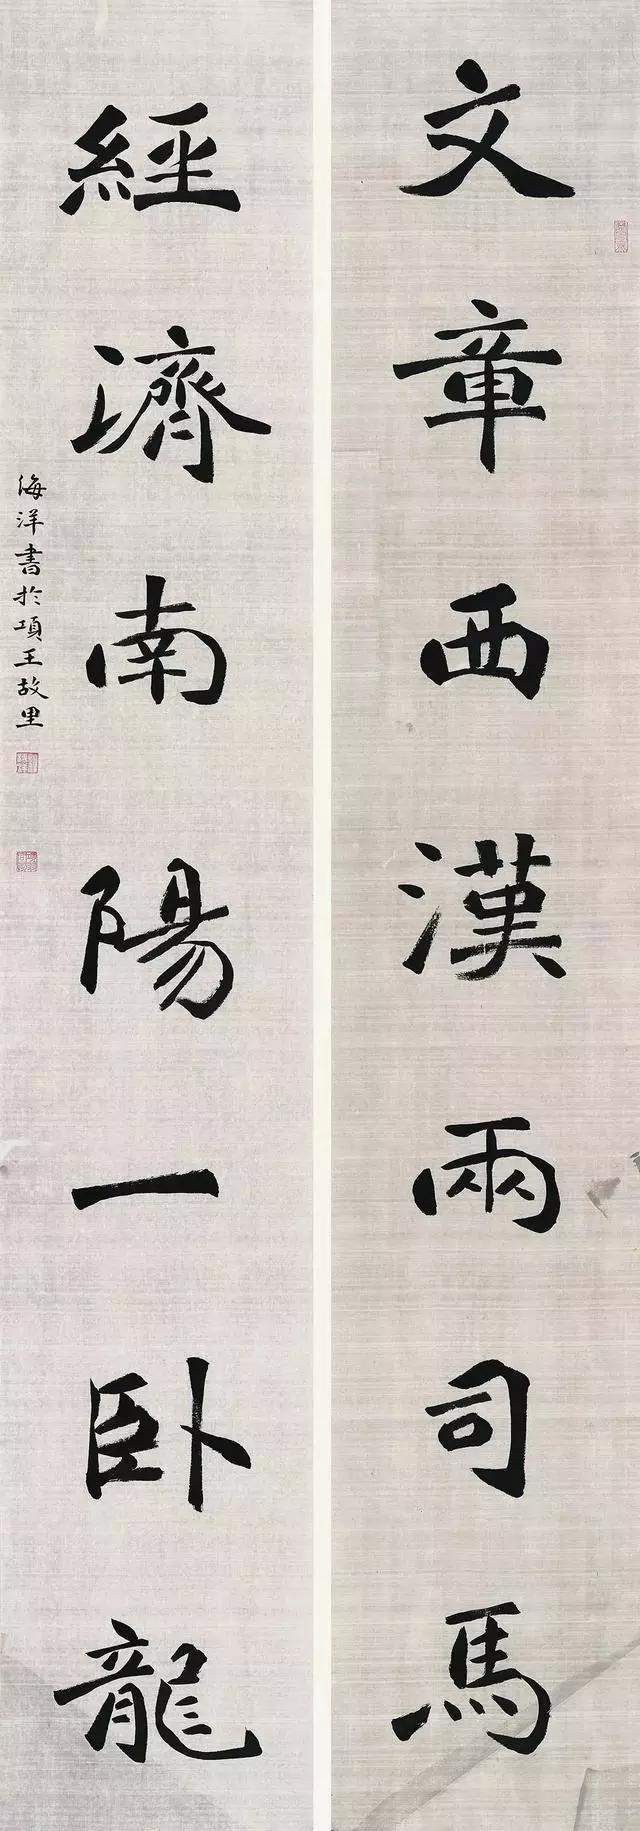 文章西漢兩司馬
經濟南陽一卧龍
海洋書於項王故里